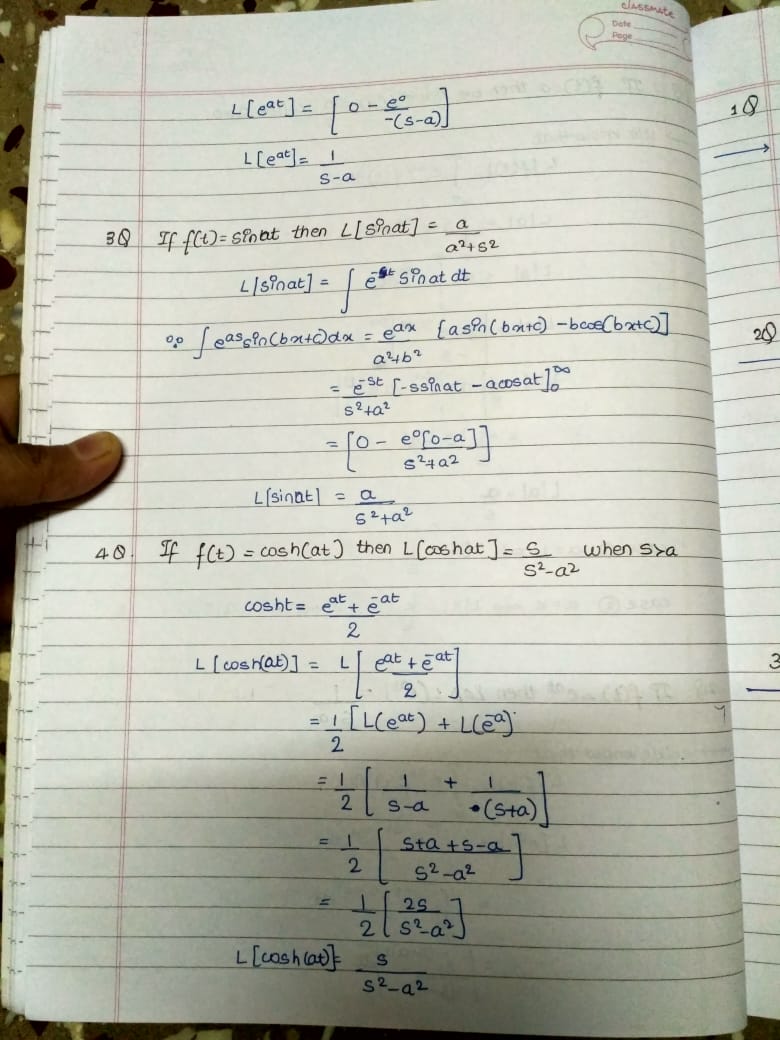 classmate
Date
Page
L[e^at] = [0 - e^0/-(s-a)]
L[e^at] = 1/s-a
3Q If f(t) = sinat then L[sinat] = a/a²+s²
L[sinat] = ∫ e^-st sinat dt
∵ ∫e^as sin(bx+c)dx = e^ax/a²+b² [asin(bx+c) - bcos(bx+c)]
= e^-st/s²+a² [-ssinat - acosat]₀^∞
= [0 - e^0[0-a]/s²+a²]
L[sinat] = a/s²+a²
4Q. If f(t) = cosh(at) then L[coshat] = s/s²-a² when s>a
cosht = e^at + e^-at/2
L[cosh(at)] = L[e^at + e^-at/2]
= 1/2 [L(e^at) + L(e^-a)]
= 1/2 [1/s-a + 1/(s+a)]
= 1/2 [s+a+s-a/s²-a²]
= 1/2 [2s/s²-a²]
L[cosh(at)] = s/s²-a²
1Q
2Q
3